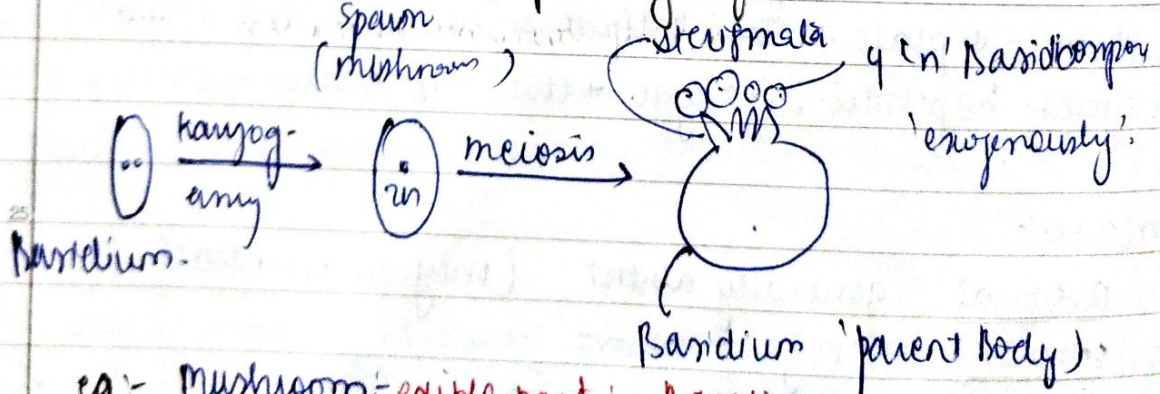 spawn
(mushrooms)
sterigmata
4 'n' Basidiospor
'exogenously'.
karyog-
amy
2n
meiosis
Basidium.
Basidium 'parent Body).
eg:- Mushroom:- edible part is